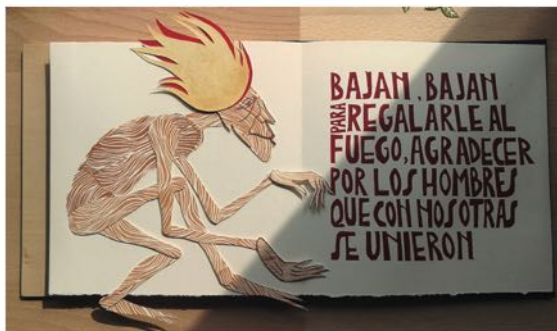 BAJAN, BAJAN
PARA REGALARLE AL
FUEGO, AGRADECER
POR LOS HOMBRES
QUE CON NOSOTRAS
SE UNIERON